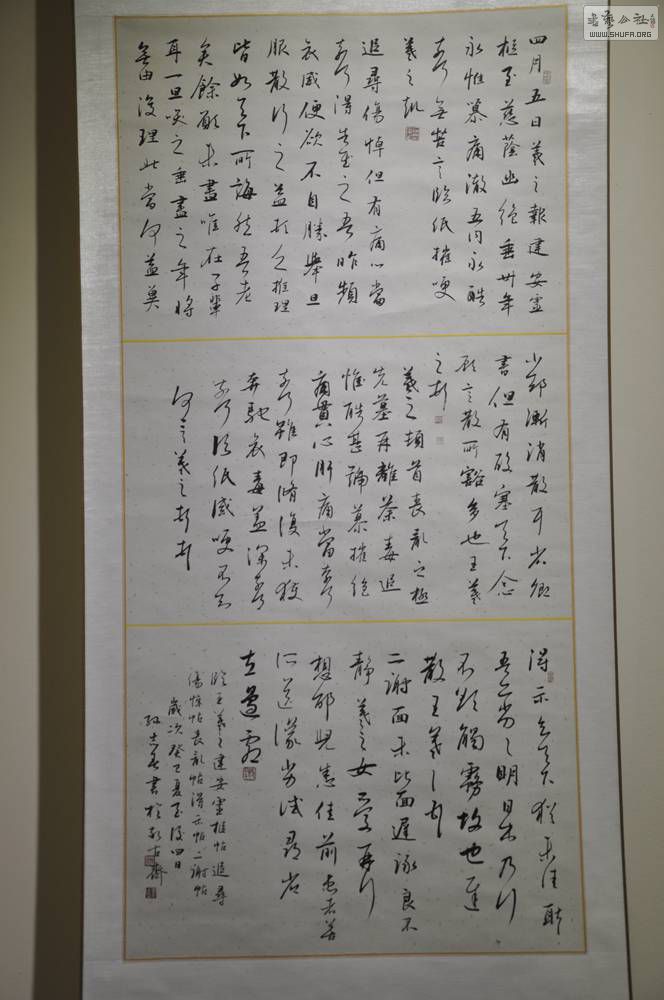 书艺公社
WWW.SHUFA.ORG
四月五日羲之報建安靈
柩至慈蔭幽絕垂卅年
永惟崇慕痛徹五內永酷
奈何無苦言臨紙摧哽
羲之
追尋傷悼但有痛心當
奈何得告慰之吾昨頻
哀感便欲不自勝舉旦
服散行之益頓乏推理
皆如足下所誨然吾老
矣餘願未盡唯在子輩
耳一旦哭之垂盡之年將
無復理此當何益奠
小卻漸消散耳省卿
書但有酸塞足下念
顧言散所豁多也王羲
之頓
羲之頓首喪亂之極
先墓再離荼毒追
惟酷甚號慕摧絕
痛貫心肝痛當奈何
奈何雖即脩復未獲
奔馳哀毒益深奈何
奈何臨紙感哽不知
何言羲之頓首頓首
得示知足下猶未佳耿
吾亦劣明日出乃行
不欲觸霧故也遲
散王羲之頓首
二謝面未比面遲詠良不
靜羲之女愛再拜
想邰兒悉佳前患者善
所送議當試尋省
左邊劇
臨王羲之建安靈柩帖追尋
傷悼帖喪亂帖得示帖二謝帖
歲次癸巳夏至後四日
書於